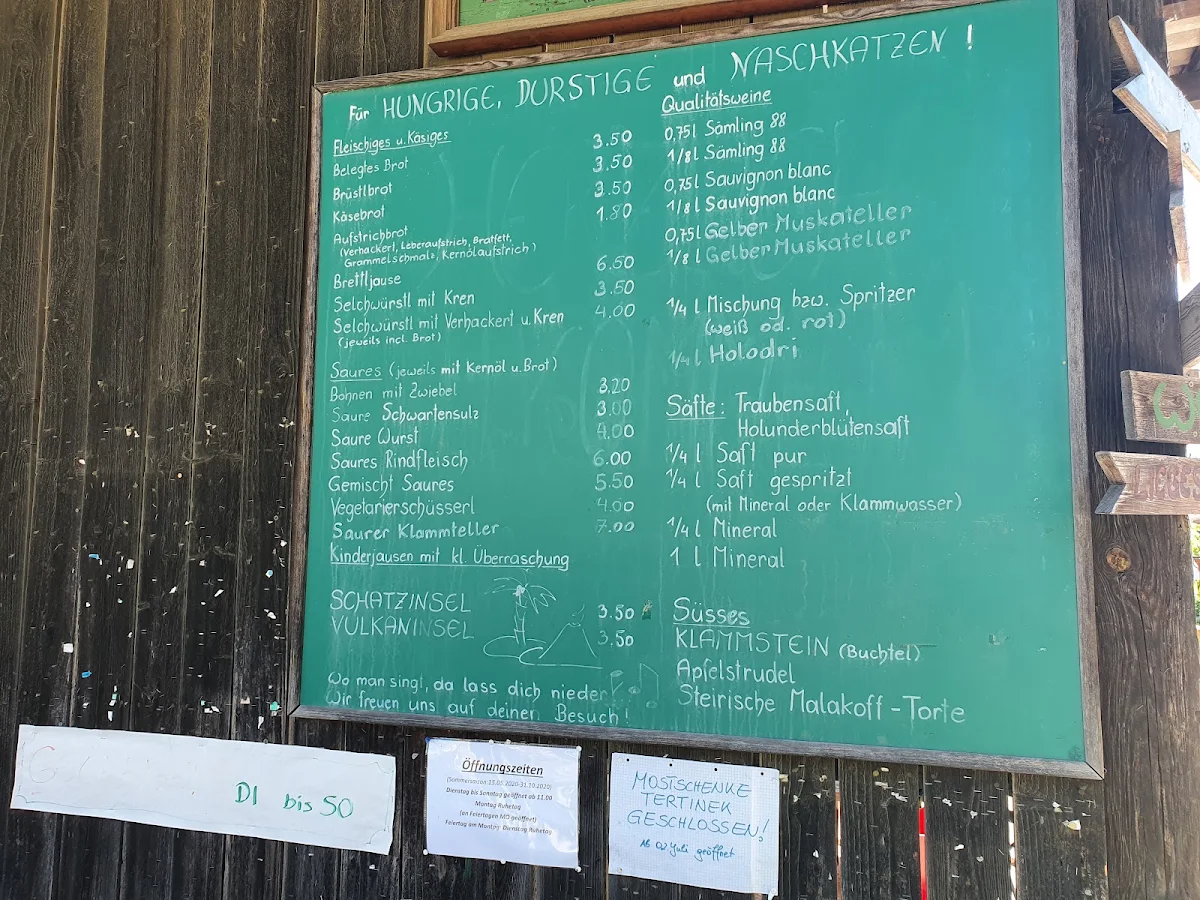 Für HUNGRIGE, DURSTIGE und NASCHKATZEN !
Fleischiges u. Käsiges
Belegtes Brot 3.50
Brüstlbrot 3.50
Käsebrot 3.50
Aufstrichbrot 1.80
(Verhackert, Leberaufstrich, Bratfett,
Grammelschmalz, Kernölaufstrich)
Brettljause 6.50
Selchwürstl mit Kren 3.50
Selchwürstl mit Verhackert u. Kren 4.00
(jeweils incl. Brot)
Saures (jeweils mit Kernöl u. Brot)
Bohnen mit Zwiebel 3.20
Saure Schwartensulz 3.00
Saure Wurst 4.00
Saures Rindfleisch 6.00
Gemischt Saures 5.50
Vegetarierschüsserl 4.00
Saurer Klammteller 7.00
Kinderjausen mit kl. Überraschung
SCHATZINSEL 3.50
VULKANINSEL 3.50
Wo man singt, da lass dich nieder
Wir freuen uns auf deinen Besuch!
Qualitätsweine
0,75 l Sämling 88
1/8 l Sämling 88
0,75 l Sauvignon blanc
1/8 l Sauvignon blanc
0,75 l Gelber Muskateller
1/8 l Gelber Muskateller
1/4 l Mischung bzw. Spritzer
(weiß od. rot)
1/4 l Holodri
Säfte: Traubensaft,
Holunderblütensaft
1/4 l Saft pur
1/4 l Saft gespritzt
(mit Mineral oder Klammwasser)
1/4 l Mineral
1 l Mineral
Süsses
KLAMMSTEIN (Buchtel)
Apfelstrudel
Steirische Malakoff-Torte
DI bis SO
Öffnungszeiten
(Sommersaison 15.05.2020-31.10.2020)
Dienstag bis Sonntag geöffnet ab 11.00
Montag Ruhetag
(an Feiertagen MO geöffnet)
Feiertag am Montag: Dienstag Ruhetag
MOSTSCHENKE
TERTINEK
GESCHLOSSEN!
Ab 02 Juli geöffnet